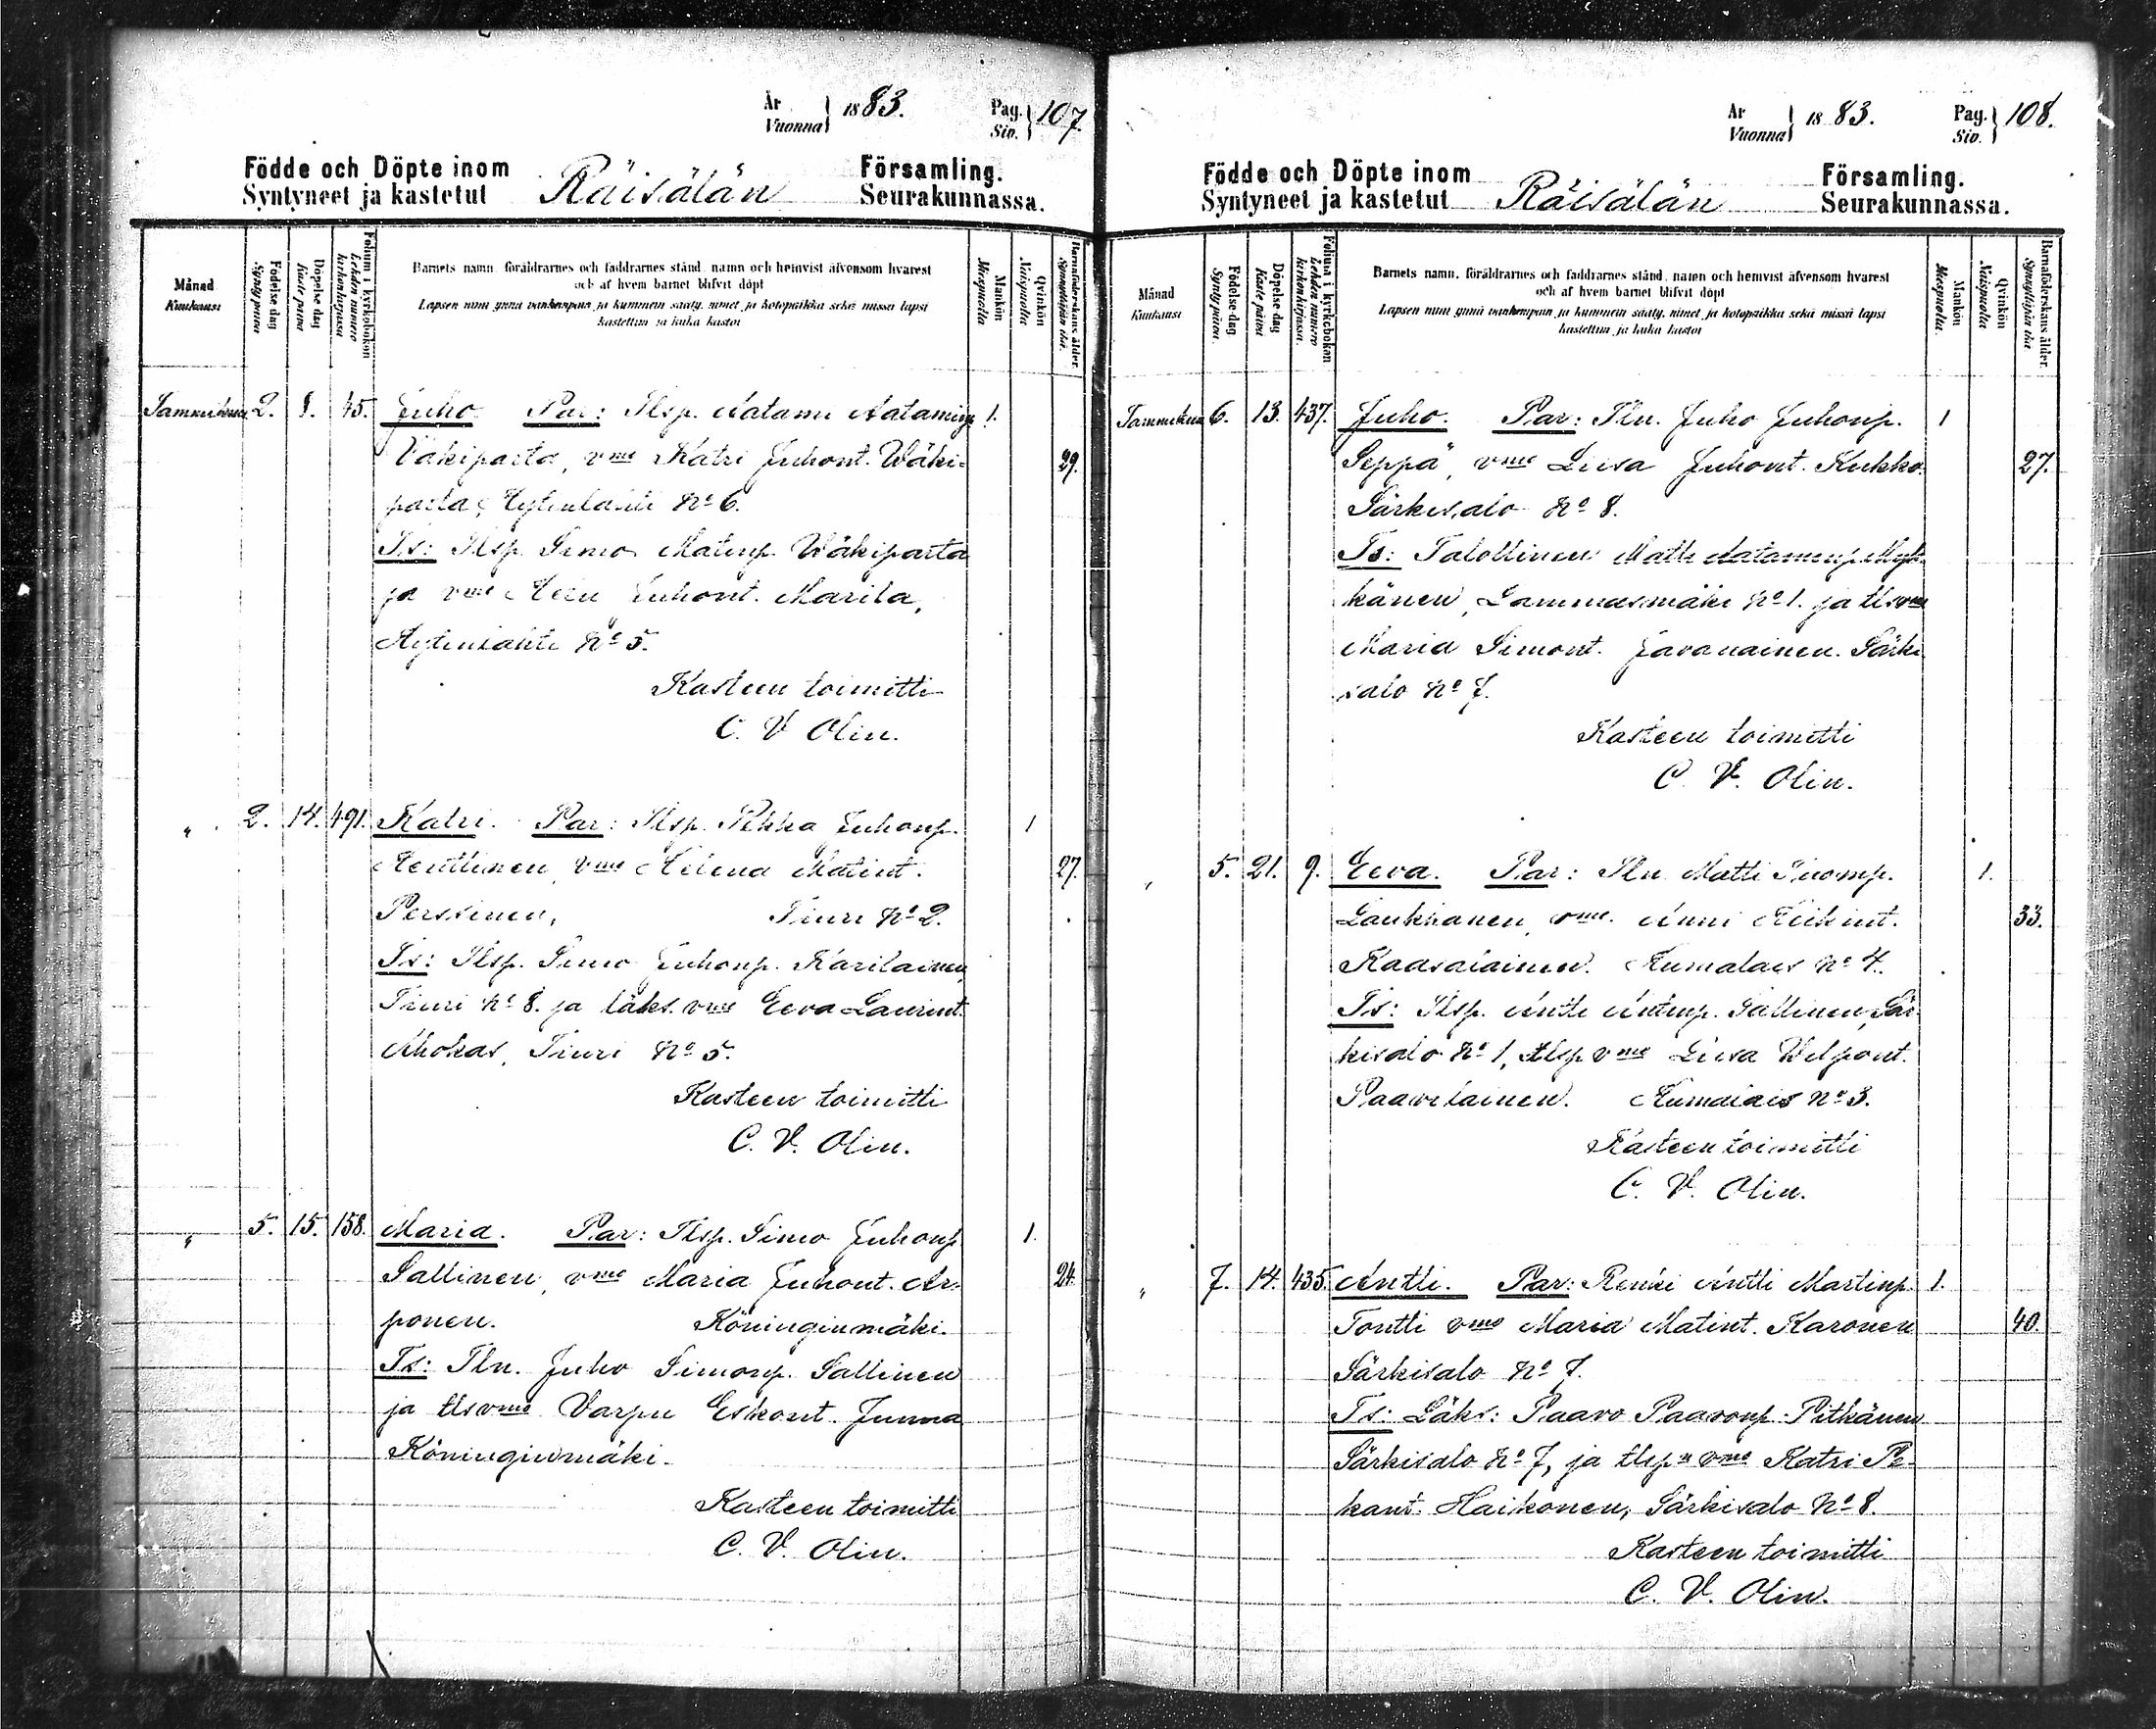 År
Vuonna } 1883.
Pag.
Siv. } 107.
Födde och Döpte inom
Syntyneet ja kastetut
Räisälän
Församling.
Seurakunnassa.
Månad
Kuukausi
Födelse-dag
Syntypäivä
Döpelse-dag
Kaste päivä
Folium i kyrkobokon
Lehden numero
kirkonkirjassa
Barnets namn, föräldrarnes och faddrarnes stånd, namn och hemvist äfvensom hvarest
och af hvem barnet blifvit döpt
Lapsen nimi ynnä vanhempain ja kummein sääty, nimet ja kotopaikka sekä missä lapsi
kastettiin ja kuka kastoi
Mankön
Miespuolta
Qvinkön
Naispuolta
Barnaföderskans ålder.
Synnyttäjän ikä.
Tammikuu 2. 8. 45. Juho Par: Tlsp. Aatami Aataminp. 1.
Väkiparta, vmo Katri Juhont. Wäki- 29.
parta, Hytinlahti No 6.
Ts: Tlsp. Simo Matinp. Wäkiparta
ja vmo Juhont. Marila,
Hytinlahti No 5.
Kasteen toimitti
C. V. Olin.
" 2. 14. 491. Katri. Par: Tlsp. Pekka Juhonp. 1
Henttinen, vmo Helena Matint. 27.
Perssinen, Tiuri No 2.
Ts: Tlsp. Simo Juhonp. Karilainen,
Tiuri No 8. ja läks. vmo Eeva Laurint.
Ahokas, Tiuri No 5.
Kasteen toimitti
C. V. Olin.
" 5. 15. 158. Maria. Par: Tlsp. Simo Juhonp. 1.
Sallinen, vmo Maria Juhont. Ar- 24.
ponen. Köninginmäki.
Ts: Tln. Juho Simonp. Sallinen
ja tlsvmo Varpu Eskont. Junna
Köninginmäki.
Kasteen toimitti
C. V. Olin.
År
Vuonna } 1883.
Pag.
Siv. } 108.
Födde och Döpte inom
Syntyneet ja kastetut
Räisälän
Församling.
Seurakunnassa.
Månad
Kuukausi
Födelse-dag
Syntypäivä
Döpelse-dag
Kaste päivä
Folium i kyrkobokon
Lehden numero
kirkonkirjassa
Barnets namn, föräldrarnes och faddrarnes stånd, namn och hemvist äfvensom hvarest
och af hvem barnet blifvit döpt
Lapsen nimi ynnä vanhempain ja kummein sääty, nimet ja kotopaikka sekä missä lapsi
kastettiin ja kuka kastoi
Mankön
Miespuolta
Qvinkön
Naispuolta
Barnaföderskans ålder.
Synnyttäjän ikä
Tammikuu 6. 13. 437. Juho. Par: Tln. Juho Juhonp. 1
Seppä, vmo Liisa Juhont. Kukko. 27.
Särkisalo No 8.
Ts: Talollinen Matti Aataminp. Myk-
känen, Lammasmäki No 1. ja tlsvmo
Maria Simont. Javanainen. Särki-
salo No 7.
Kasteen toimitti
C. V. Olin.
" 5. 21. 9. Eeva. Par: Tln. Matti Tuomp. 1.
Laukkanen, vmo. Anni Heikint. 33.
Kaasalainen. Humalais No 4.
Ts: Tlsp. Antti Antinp. Sallinen, Sär-
kisalo No 1, tlsp vmo Liisa Wilpont.
Paavilainen. Humalais No 3.
Kasteen toimitti
C. V. Olin.
" 7. 14. 435. Antti. Par: Renki Antti Martinp. 1.
Tontti vmo Maria Matint. Karonen 40.
Särkisalo No 7.
Ts: Läks: Paavo Paavonp. Pitkänen
Särkisalo No 7, ja tlspn vmo Katri Pe-
kant. Haikonen, Särkisalo No 8.
Kasteen toimitti
C. V. Olin.